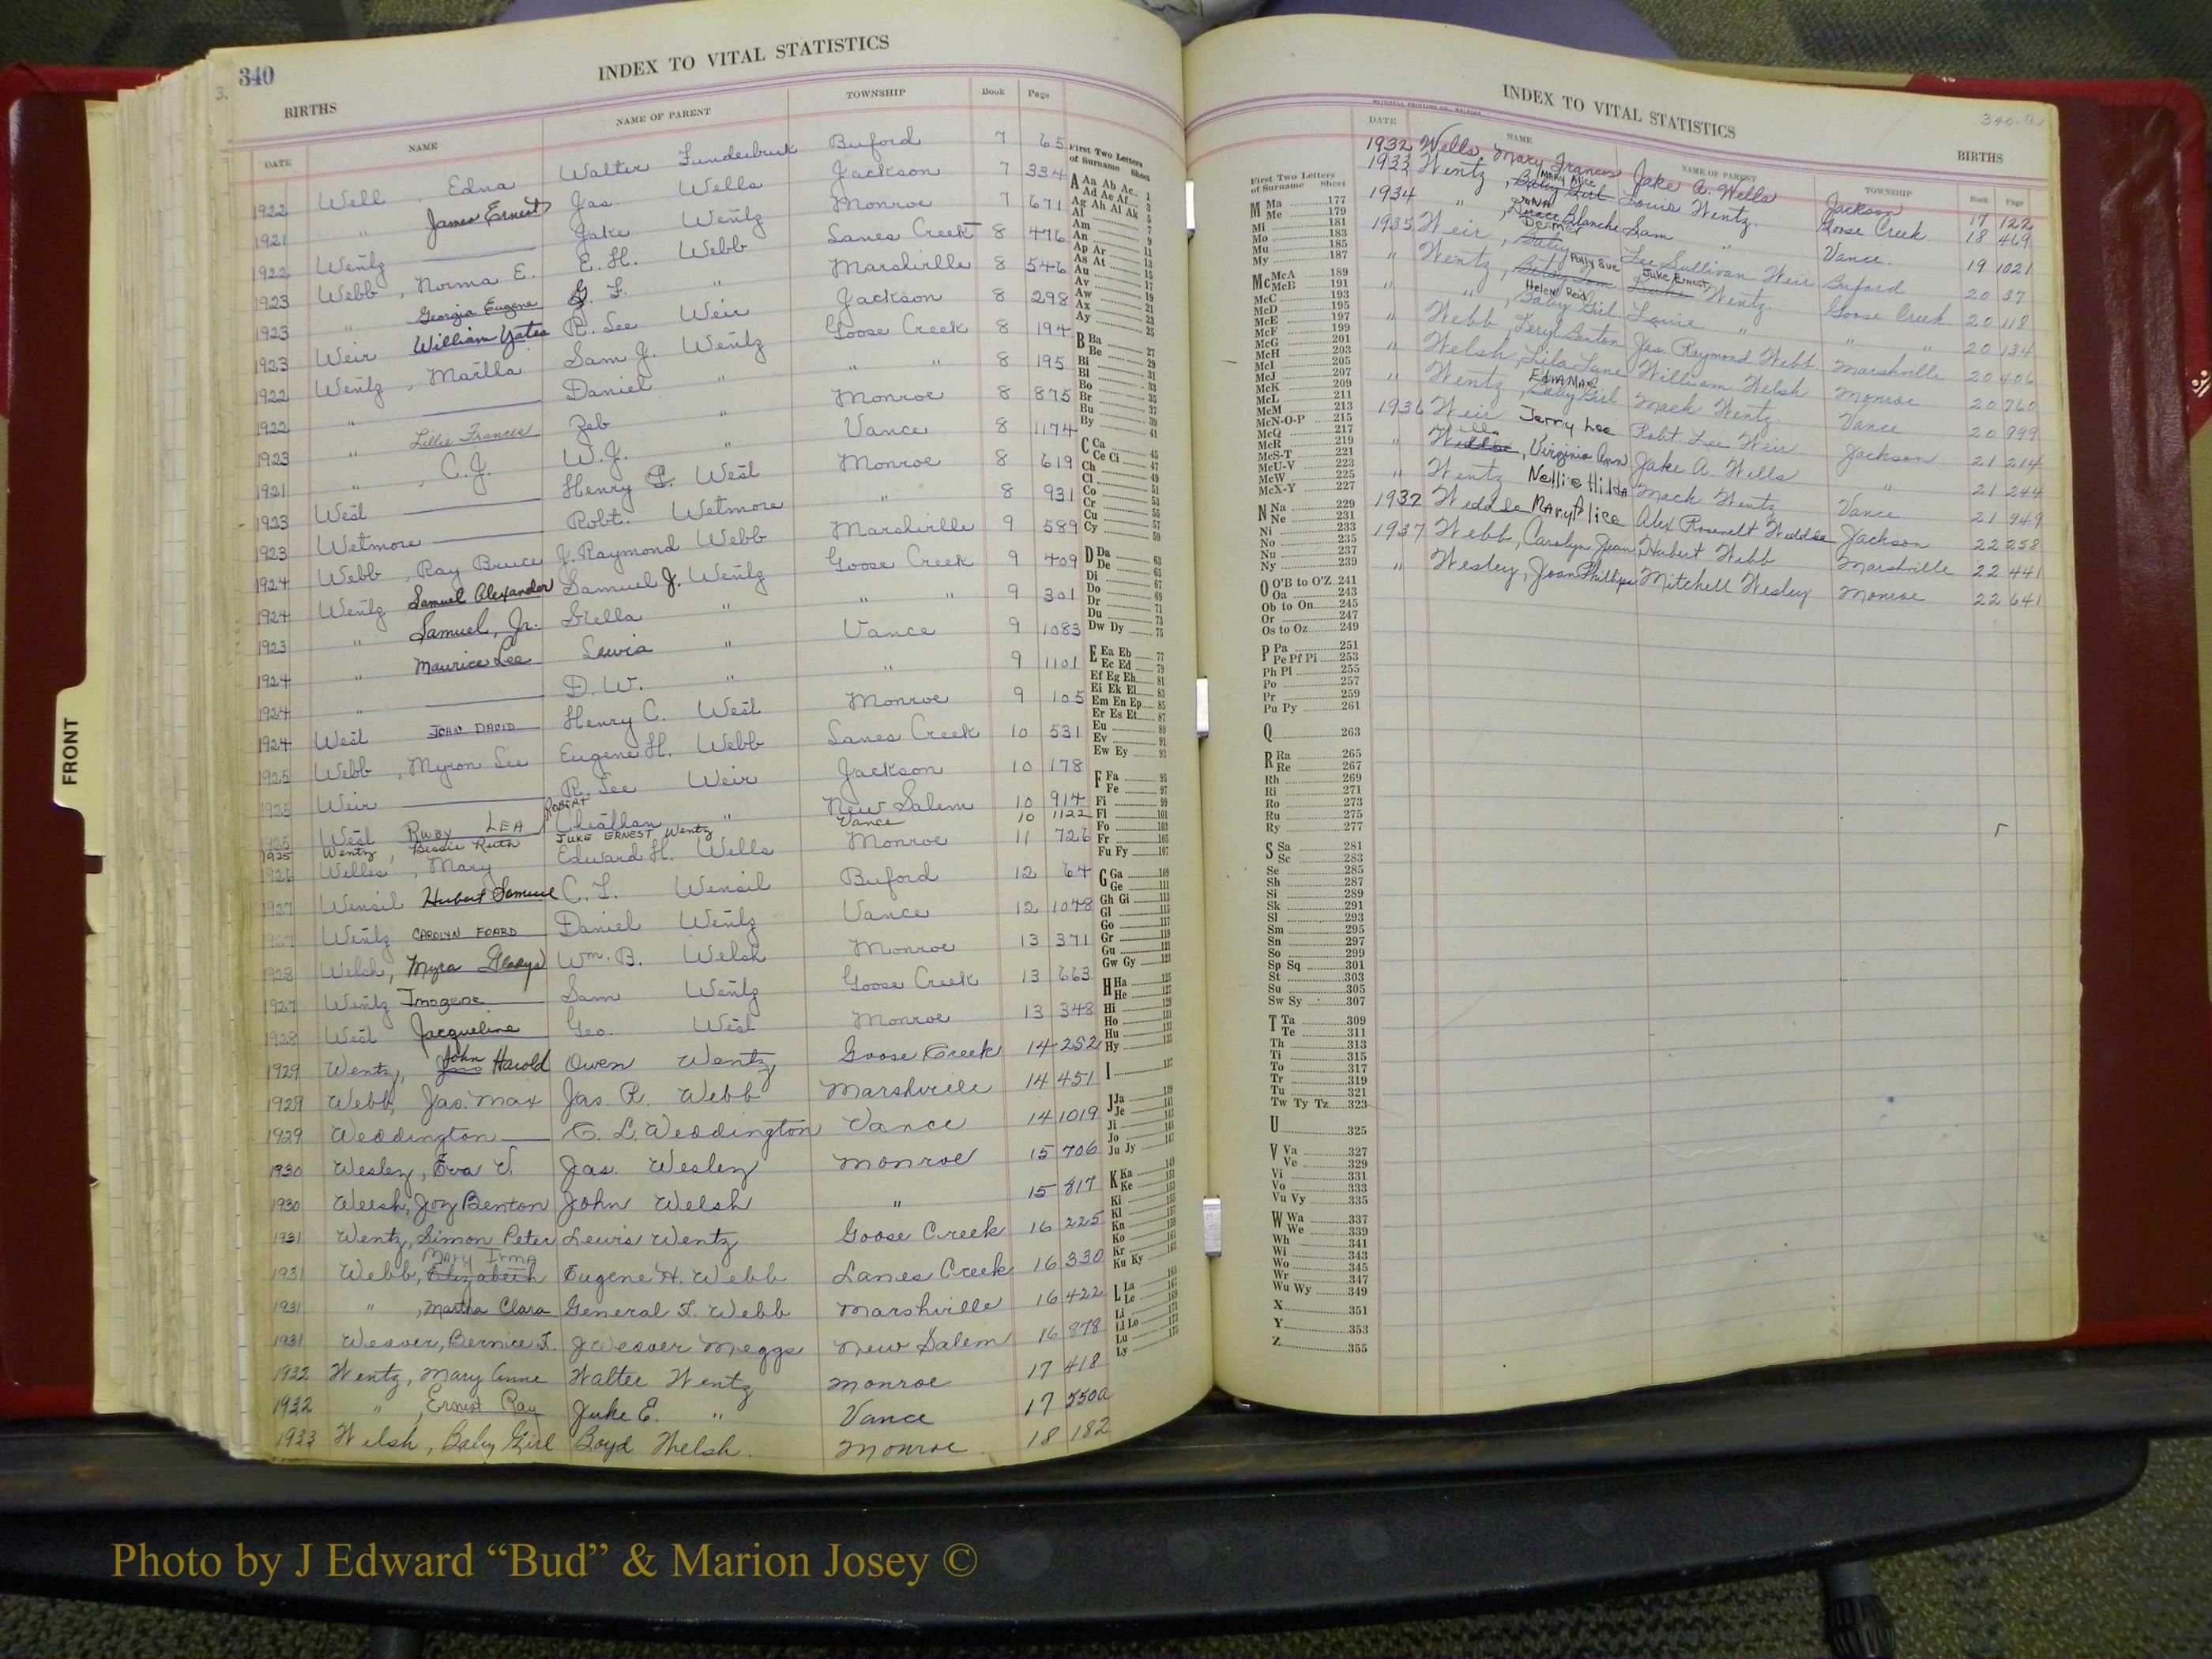 340
INDEX TO VITAL STATISTICS
BIRTHS
DATE NAME NAME OF PARENT TOWNSHIP Book Page
1922 Well, Edna Walter Funderburk Buford 7 65
1921 " James Ernest Jas. Wells Jackson 7 334
1922 Wentz Jake Wentz Monroe 7 671
1923 Webb, Norma E. E. H. Webb Lanes Creek 8 476
1923 " Georgia Eugene G. F. " Marshville 8 546
1923 Weir William Yates R. Lee Weir Jackson 8 298
1922 Wentz, Marlla Sam J. Wentz Goose Creek 8 194
1922 " Daniel " " " 8 195
1923 " Lillie Frances Zeb " Monroe 8 875
1921 ", C. J. W. J. " Vance 8 1174
1923 West Henry West Monroe 8 619
1923 Wetmore Robt. Wetmore " 8 931
1924 Webb, Ray Bruce J. Raymond Webb Marshville 9 589
1924 Wentz Samuel Alexander Samuel J. Wentz Goose Creek 9 409
1923 " Samuel, Jr. Stella " " " 9 301
1924 " Maurice Lee Lewis " Vance 9 1083
1924 " D. W. " " 9 1101
1924 West JOHN DAVID Henry C. West Monroe 9 105
1925 Webb, Myron Lee Eugene H. Webb Lanes Creek 10 531
1925 Weir R. Lee Weir Jackson 10 178
1925 West RUBY LEA ROBERT " New Salem 10 914
1925 Wentz, Bessie Ruth JUKE ERNEST Wentz Vance 10 1122
1926 Welles, Mary Edward H. Wells Monroe 11 726
1927 Wensil Hubert Samuel C. L. Wensil Buford 12 64
1927 Wentz CAROLYN FOARD Daniel Wentz Vance 12 1048
1928 Welsh, Myra Gladys Wm. B. Welsh Monroe 13 371
1927 Wentz Imogene Sam Wentz Goose Creek 13 663
1928 West Jacqueline Geo. West Monroe 13 348
1929 Wentz, John Harold Owen Wentz Goose Creek 14 252
1929 Webb, Jas. Max Jas. R. Webb Marshville 14 451
1929 Weddington C. L. Weddington Vance 14 1019
1930 Wesley, Eva V. Jas. Wesley Monroe 15 706
1930 Welsh, Joy Benton John Welsh " 15 817
1931 Wentz, Simon Peter Lewis Wentz Goose Creek 16 225
MARY Irma
1931 Webb, Elizabeth Eugene H. Webb Lanes Creek 16 330
1931 ", Martha Clara General F. Webb Marshville 16 422
1931 Weaver, Bernice F. J Weaver Meggs New Salem 16 878
1932 Wentz, Mary Anne Walter Wentz Monroe 17 418
1932 ", Ernest Ray Juke E. " Vance 17 550a
1933 Welsh, Baby Girl Boyd Welsh. Monroe 18 182
First Two Letters
of Surname Sheet
A Aa Ab Ac 1
Ad Ae Af 3
Ag Ah Ai Ak 5
Al 7
Am 9
An 11
Ap Ar 13
As At 15
Au 17
Av 19
Aw 21
Ax 23
Ay 25
B Ba 27
Be 29
Bi 31
Bl 33
Bo 35
Br 37
Bu 39
By 41
C Ca 45
Ce Ci 47
Ch 49
Cl 51
Co 53
Cr 55
Cu 57
Cy 59
D Da 63
De 65
Di 67
Do 69
Dr 71
Du 73
Dw Dy 75
E Ea Eb 77
Ec Ed 79
Ef Eg Eh 81
Ei Ek El 83
Em En Ep 85
Er Es Et 87
Eu 89
Ev 91
Ew Ey 93
F Fa 95
Fe 97
Fi 99
Fl 101
Fo 103
Fr 105
Fu Fy 107
G Ga 109
Ge 111
Gh Gi 113
Gl 115
Go 117
Gr 119
Gu 121
Gw Gy 123
H Ha 125
He 127
Hi 129
Ho 131
Hu 133
Hy 135
I 137
J Ja 139
Je 141
Ji 143
Jo 145
Ju Jy 147
K Ka 149
Ke 151
Ki 153
Kl 155
Kn 157
Ko 159
Kr 161
Ku Ky 163
L La 165
Le 167
Li 169
Ll Lo 171
Lu 173
Ly 175
340-a
INDEX TO VITAL STATISTICS
MITCHELL PRINTING CO., RALEIGH
BIRTHS
DATE NAME NAME OF PARENT TOWNSHIP Book Page
1932 Wells Mary Frances Jake A. Wells Jackson 17 122
MARY Alice
1933 Wentz, Baby Girl Louie Wentz. Goose Creek 18 469
1934 ", Blanche Sam " Vance. 19 1021
1935 Weir, Baby Lee Sullivan Weir Buford 20 37
Polly Sue Juke Ernest
" Wentz, Wentz. Goose Creek 20 118
Helen Reid
" ", Baby Girl Louie " " " 20 134
" Webb, Feryl Benton Jas. Raymond Webb Marshville 20 406
" Welsh, Lila Lane William Welsh Monroe 20 760
EDNA MAE
" Wentz, Baby Girl Mack Wentz. Vance 20 999
1936 Weir Jerry Lee Robt. Lee Weir. Jackson 21 214
Wells
" , Virginia Ann Jake A. Wells " 21 244
" Wentz Nellie Hilda Mack Wentz Vance 21 949
1937 Weddle Mary Alice Alex Rosevelt Weddle Jackson 22 258
1937 Webb, Carolyn Jean Hubert Webb Marshville 22 441
" Wesley, Joan Phillips Mitchell Wesley Monroe 22 641
First Two Letters
of Surname Sheet
M Ma 177
Me 179
Mi 181
Mo 183
Mu 185
My 187
Mc McA 189
McB 191
McC 193
McD 195
McE 197
McF 199
McG 201
McH 203
McI 205
McJ 207
McK 209
McL 211
McM 213
McN-O-P 215
McQ 217
McR 219
McS-T 221
McU-V 223
McW 225
McX-Y 227
N Na 229
Ne 231
Ni 233
No 235
Nu 237
Ny 239
O O'B to O'Z 241
Oa 243
Ob to On 245
Or 247
Os to Oz 249
P Pa 251
Pe Pf Pi 253
Ph Pl 255
Po 257
Pr 259
Pu Py 261
Q 263
R Ra 265
Re 267
Rh 269
Ri 271
Ro 273
Ru 275
Ry 277
S Sa 281
Sc 283
Se 285
Sh 287
Si 289
Sk 291
Sl 293
Sm 295
Sn 297
So 299
Sp Sq 301
St 303
Su 305
Sw Sy 307
T Ta 309
Te 311
Th 313
Ti 315
To 317
Tr 319
Tu 321
Tw Ty Tz 323
U 325
V Va 327
Ve 329
Vi 331
Vo 333
Vu Vy 335
W Wa 337
We 339
Wh 341
Wi 343
Wo 345
Wr 347
Wu Wy 349
X 351
Y 353
Z 355
FRONT
Photo by J Edward “Bud” & Marion Josey ©